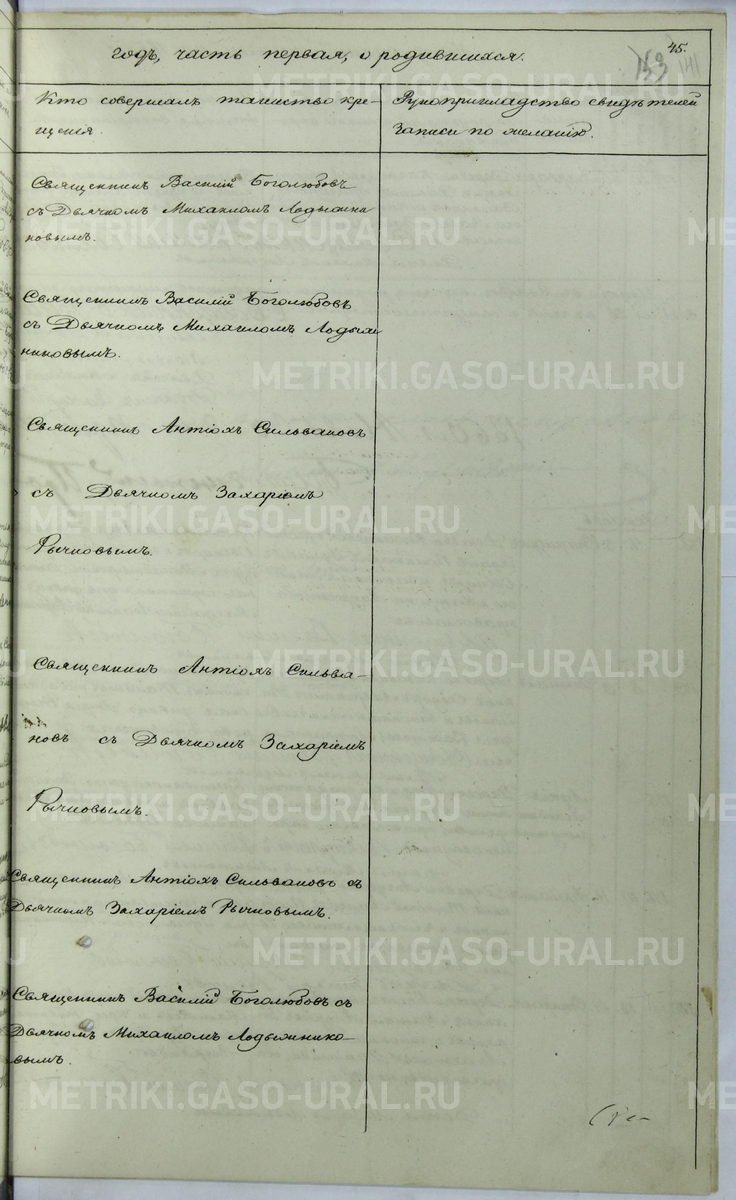 45.
годъ, часть первая, о родившихся.
141
Кто совершалъ таинство кре-
щенія.
Рукоприкладство свидѣтелей
записи по желанію.
Священникъ Василій Боголюбовъ
съ Дьячкомъ Михаиломъ
новымъ.
Священникъ Василій Боголюбовъ
съ Дьячкомъ Михаиломъ
никовымъ.
Священникъ Антіохъ Сильвановъ
съ Дьячкомъ Захаріемъ
Рычковымъ.
Священникъ Антіохъ Сильва-
новъ съ Дьячкомъ Захаріемъ
Рычковымъ.
Священникъ Антіохъ Сильвановъ съ
Дьячкомъ Захаріемъ Рычковымъ.
Священникъ Василій Боголюбовъ съ
Дьячкомъ Михаиломъ Лодыжнико-
вымъ.
METRIKI.GASO-URAL.RU